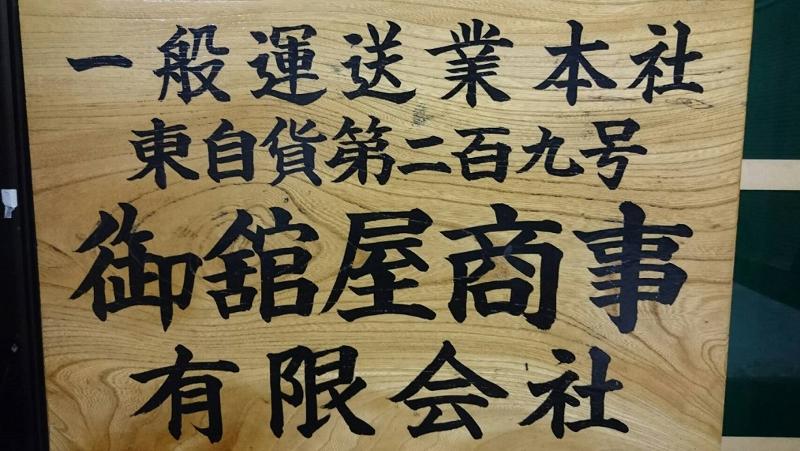 一般運送業本社
東自貨第二百九号
御舘屋商事
有限会社